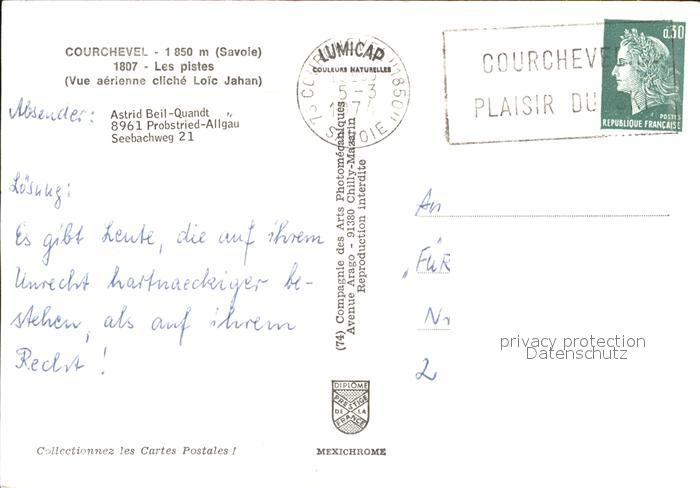 COURCHEVEL - 1 850 m (Savoie)
1807 - Les pistes
(Vue aérienne cliché Loïc Jahan)
Absender:
Astrid Beil-Quandt
8961 Probstried-Allgäu
Seebachweg 21
Lösung:
Es gibt Leute, die auf ihrem
Unrecht hartnaeckiger be-
stehen, als auf ihrem
Recht!
Collectionnez les Cartes Postales !
LUMICAP
COULEURS NATURELLES
5-3
SAVOIE
(74) Compagnie des Arts Photomécaniques
Avenue Arago - 91380 Chilly-Mazarin
Reproduction interdite
DIPLÔME
PRESTIGE
DE LA
FRANCE
MEXICHROME
COURCHEVEL
PLAISIR DU
0,30
POSTES
REPUBLIQUE FRANÇAISE
An
„FÜR
Nr
2
privacy protection
Datenschutz